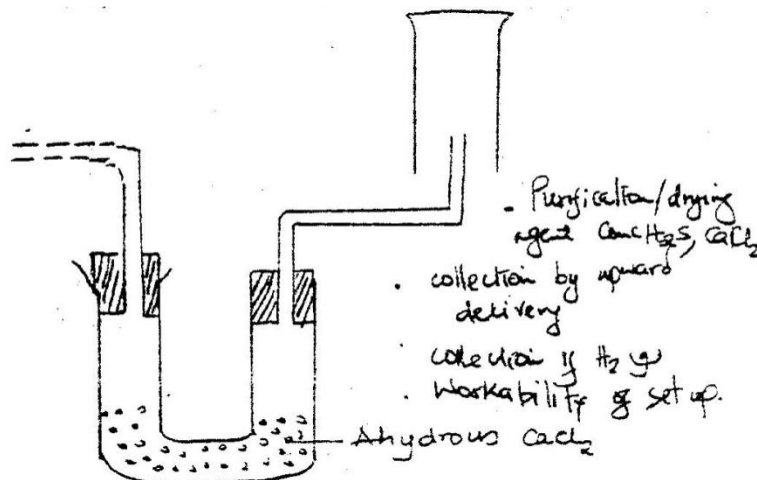 . Purification/drying
agent Conc H2S, CaCl2
. collection by upward
delivery
. collection of H2
. Workability of set up.
Ahydrous CaCl2